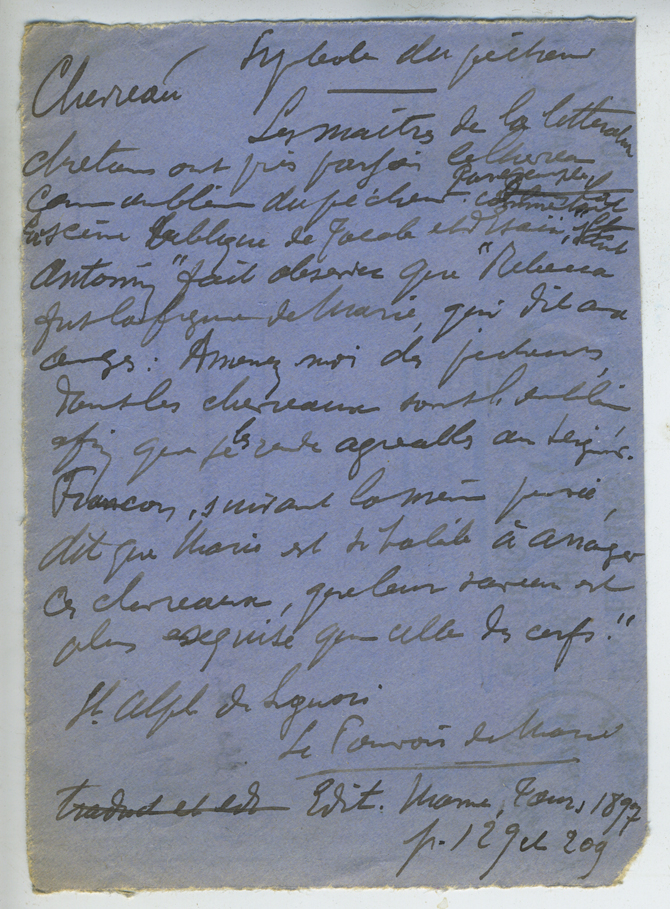 Symbole du pécheur
Chevreau
Les maîtres de la littérature
chrétienne ont pris parfois le chevreau
comme emblème du pécheur. Par exemple
scène biblique de Jacob et d'Esaü, Saint
Antonin "fait observer que "Rebecca
fut la figure de Marie, qui dit aux
anges : Amenez moi des pécheurs,
dont les chevreaux sont l'emblème
afin que je les rende agréables au Seigneur.
Francon, suivant la même pensée,
dit que Marie est si habile à arranger
ces chevreaux, que leur saveur est
plus exquise que celle des cerfs."
St. Alph. de Liguori
Le Pouvoir de Marie
traduct et edit Edit. Mame, Tours, 1897
p. 129 et 209